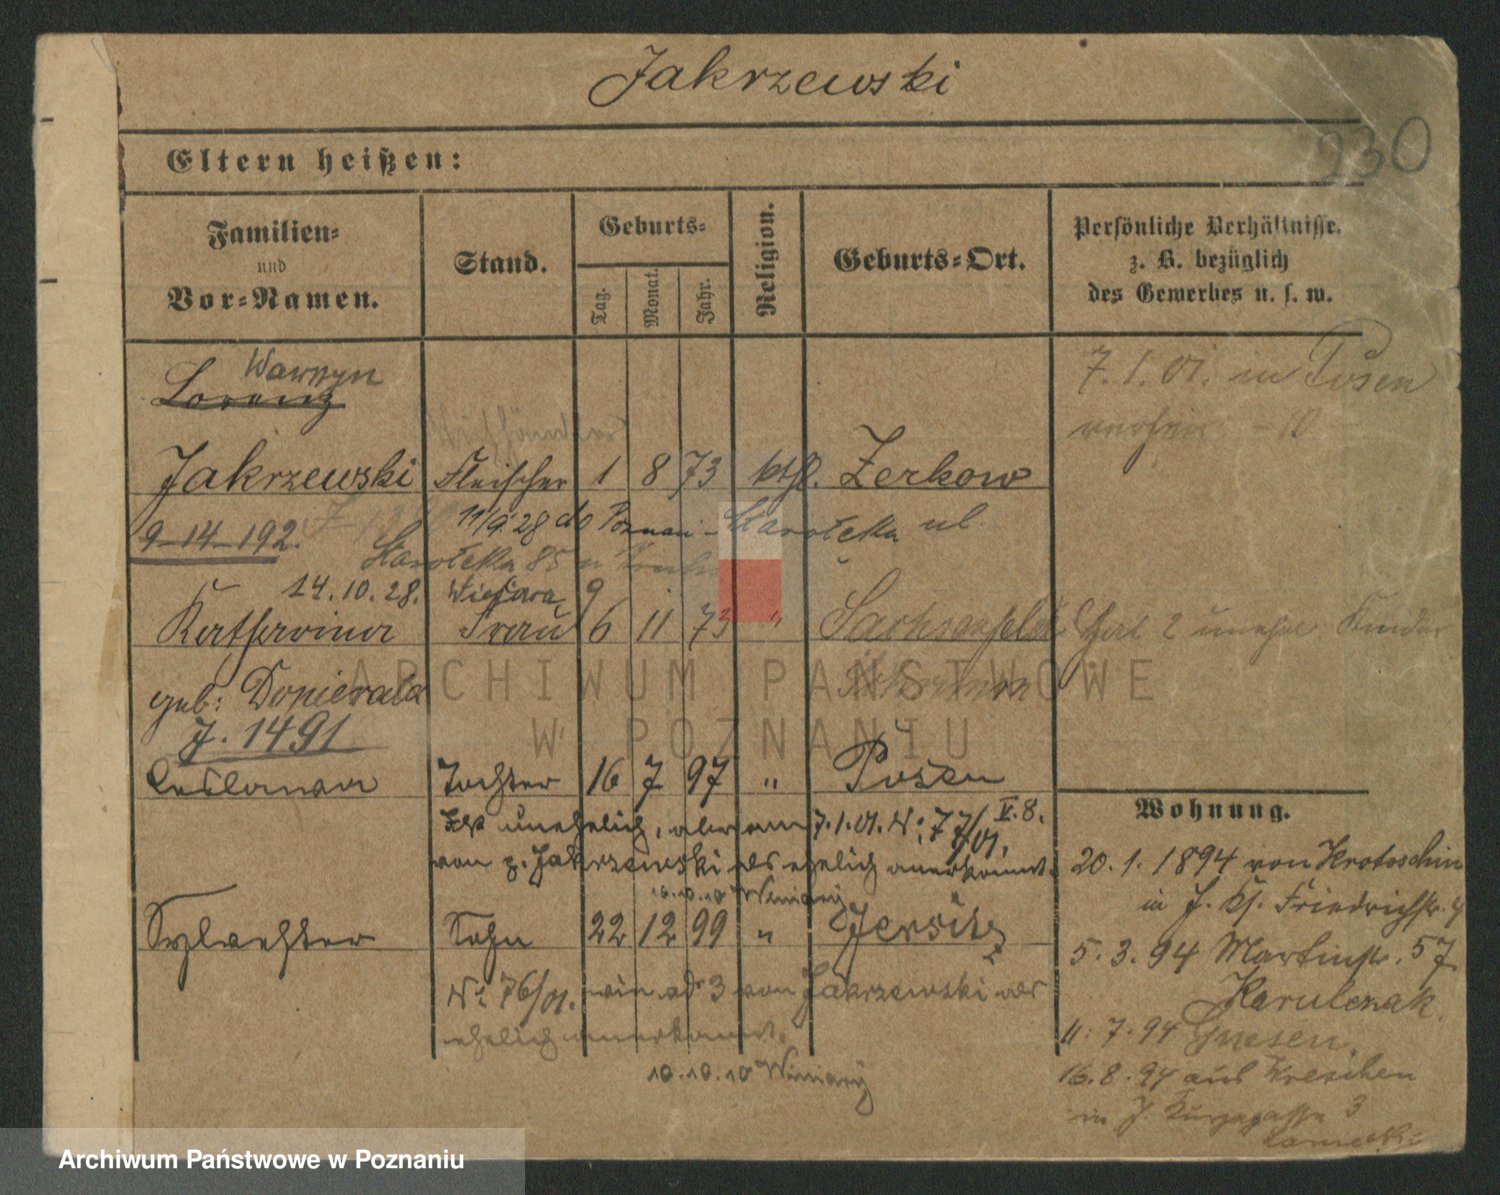 Jakrzewski
930
Eltern heißen:
Familien-
und
Vor-Namen.
Stand.
Geburts-
Tag.
Monat.
Jahr.
Religion.
Geburts-Ort.
Persönliche Verhältnisse,
z. B. bezüglich
des Gewerbes u. s. w.
Wawrzyn
Lorenz
7. 1. 01. in Posen
10
Jakrzewski Fleischer 1 8 73 kthl. Zerkow
11/9 28 do Poznań Starołęka ul.
9-14-192
Starołęka 85
14.10.28.
Katharina Frau 6 11 73 "
Hat 2 unehel. Kinder
geb: Dopierala
J. 1491
Ceslawa Tochter 16 7 97 " Posen
Ist unehelich, aber am 7.1.01. No: 77/01. V.8.
von p. Jakrzewski als ehelich anerkannt.
10.10.10 Winiary
Sylvester Sohn 22 12 99 " Jersitz
No 76/01. wie ad 3 von Jakrzewski als
ehelich anerkannt.
10.10.10 Winiary
Wohnung.
20. 1. 1894 von Krotoschin
in J. Kl. Friedrichstr. 4
5. 3. 94 Martinstr. 57
Karulczak.
11. 7. 94 Gnesen.
16. 8. 94 aus Wreschen
in J. 3
ARCHIWUM PAŃSTWOWE
W POZNANIU
Archiwum Państwowe w Poznaniu